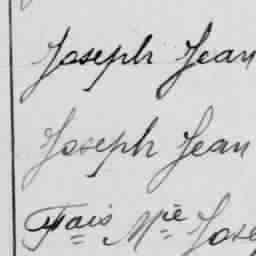 Joseph Jean
Joseph Jean
Fçais Mie Jose